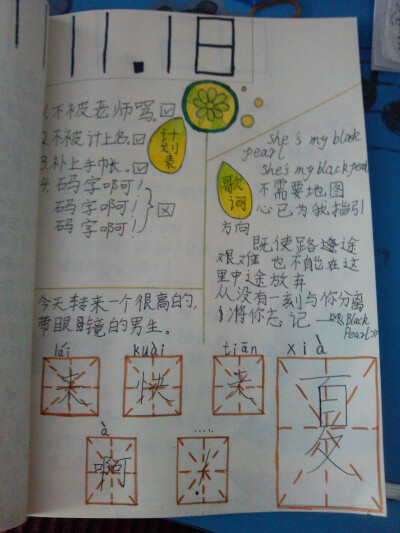 11.18
1.不被老师骂。☑
2.不被计上名。☑
3.补上手帐。☑
4.码字啊！
码字啊！
码字啊！
计划表
she's my black
pearl
she's my black pearl
不需要地图
心已为我指引
方向
歌词
既使路途
艰难 也不能在这
里中途放弃
从没有一刻与你分离
将你忘记 —《Black
Pearl》
今天转来一个很高的，
带眼镜的男生。
lái kuài tiān xià
来 快 夏
à ……
啊